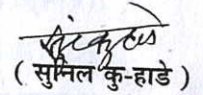 ( सुनिल कु-हाडे )